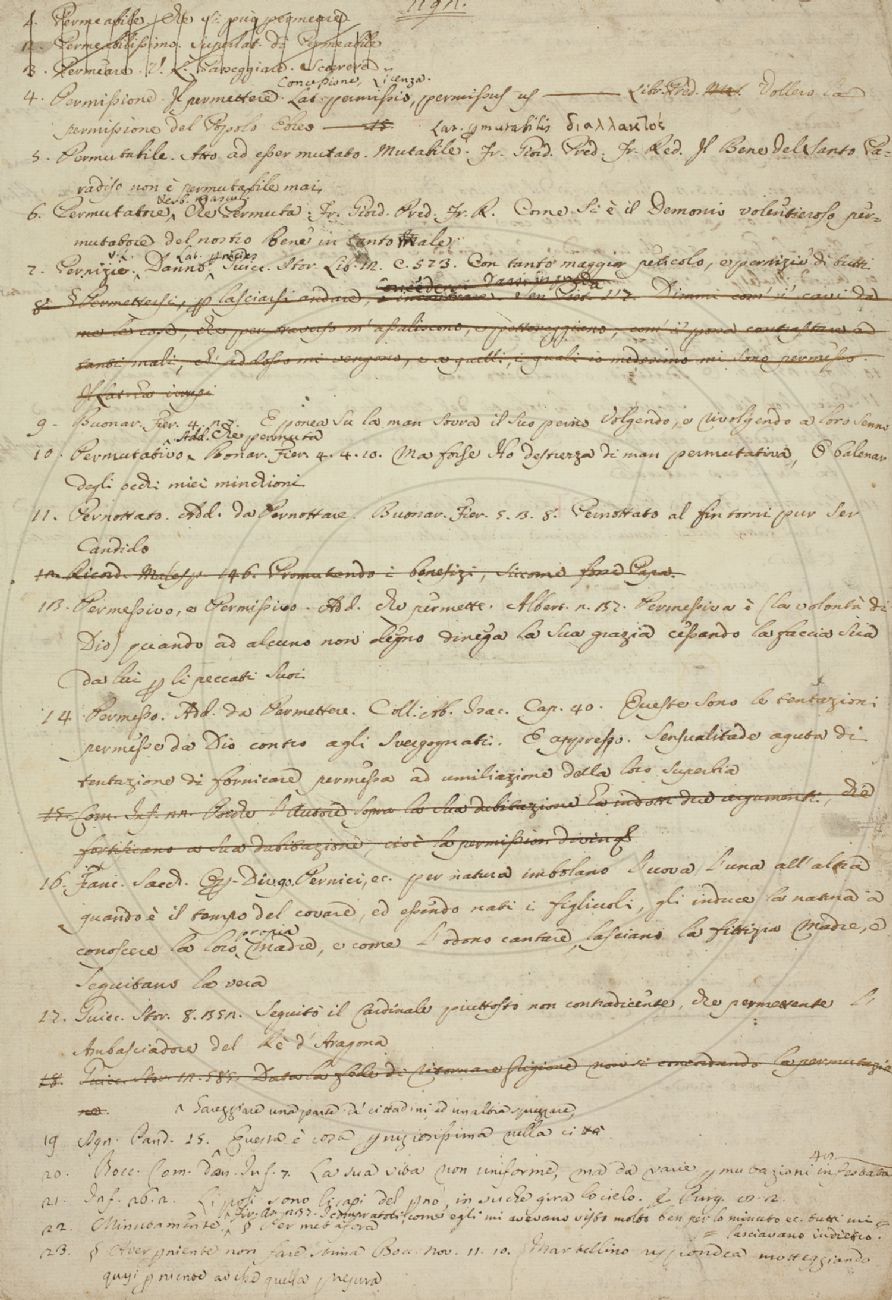 1. Permeabile, Che si può permeare
2. Permeabilissimo. Superlat. di Permeabile
3. Permeare. V. L. Passeggiare. Scorrere
Concessione, Licenza.
4. Permissione. Il permettere. Lat. permissio, permissus us Libr. Pred. Vollero la
permissione del Popolo Ebreo
Lat. permutabilis διαλλακτός
5. Permutabile. Atto ad esser mutato. Mutabile. Fr. Giord. Pred. Fr. Red. Il Bene del Santo Pa-
radiso non è permutabile mai.
Verb. Mascul.
6. Permutatore, Che Permuta. Fr. Giord. Pred. Fr. R. Come si è il Demonio volentieroso per-
mutatore del nostro bene in tanto male.
7. Pernizie. Danno. Guicc. Stor. Lib. 12. C. 573. Con tanto maggior pericolo, e pernizie di tutti
8. Permettersi, per lasciarsi andare, Sen. Pist. 117. Dimmi com' i' cacci da
me le cose, che per traverso m' assaliscono, com' i' possa contrastare a
tanti mali, ch' addosso mi vengono, e a quelli, i quali io medesimo mi sono permesso.
9. Buonar. Fier. 4. E ponea su la man sovra il suo perno Volgendo, e rivolgendo a loro senno
Add. Che permuta
10. Permutativo. Buonar. Fier. 4. 4. 10. Ma forse Ho destrezza di man permutativa, E balenar
degli occhi miei minchioni
11. Pernottato. Add. da Pernottare. Buonar. Fier. 5. 3. 8. Pernottato al fin torni pur ser
Candido
12. Ricord. Malesp. 146. Promutando i benefizi, siccome fosse Papa.
13. Permessivo, e Permissivo. Add. Che permette. Albert. 2. 132. Permessiva è (la volontà di
Dio) quando ad alcuno non degno diniega la sua grazia cessando la faccia sua
da lui per li peccati suoi
14 Permesso. Add. da Permettere. Coll. Ab. Isac. Cap. 40. Queste sono le tentazioni
permesse da Dio contro agli svergognati. E appresso. Sensualitade aguta di
tentazione di fornicare permessa ad umiliazione della loro superbia
15. Com. Inf. Pone l' Autore sopra la sua dubitazione due argomenti, che
fortificano la sua dubitazione, cioè la permission divina
16. Franc. Sacch. Op. Div. 90. Pernici, ec. per natura imbolano l' uova, l' una all' altra
quando è il tempo del covare, ed essendo nati i figliuoli, gli induce la natura a
propia
conoscere la loro madre, e come l' odono cantare, lasciano la fittizia madre, e
seguitano la vera
17. Guicc. Stor. 8. Seguitò il Cardinale piuttosto non contradicente, che permettente l'
Ambasciadore del Re d' Aragona
18. Guicc. Stor. 12. 585. Data la fede di ritornare prigione non si concedendo la permutazio
ne.
Careggiare una parte de' cittadini ed un' altra sprezzare
19 Agn. Pand. 15. Questa è cosa perniziosissima nella città
20. Bocc. Com. Dan. Inf. 7. La sua vita non uniforme, ma da varie permutazioni
21. Inf. 26. 2. Li poli sono li capi del perno, in su che gira lo cielo. E Purg.
22. Minutamente, § Per metafora come egli mi avevano visto molto ben per lo minuto ec. tutti mi
lasciavano indietro.
23. § Aver per niente non fare stima Boc. Nov. 11. 10. Martellino rispondea motteggiando
quasi per niente avesse quella presura